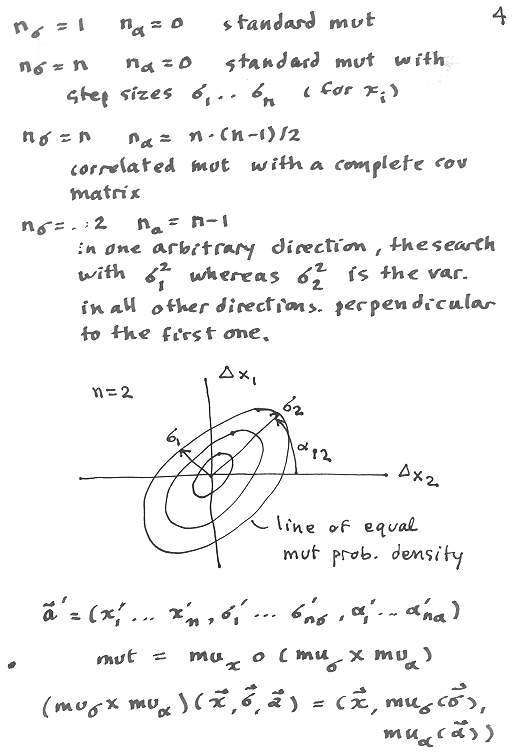 4
n_σ = 1 n_α = 0 standard mut
n_σ = n n_α = 0 standard mut with
step sizes σ_1 .. σ_n (for x_i)
n_σ = n n_α = n·(n-1)/2
correlated mut with a complete cov
matrix
n_σ = . : 2 n_α = n-1
in one arbitrary direction, the search
with σ_1^2 whereas σ_2^2 is the var.
in all other directions. perpendicular
to the first one.
Δx_1
n=2
σ_2
σ_1
α_12
Δx_2
line of equal
mut prob. density
a⃗' = (x_1' ... x_n', σ_1' ... σ_nσ', α_1' .. α_nα')
mut = mu_x o (mu_σ x mu_α)
(mu_σ x mu_α)(x⃗, σ⃗, α⃗) = (x⃗, mu_σ(σ⃗),
mu_α(α⃗))